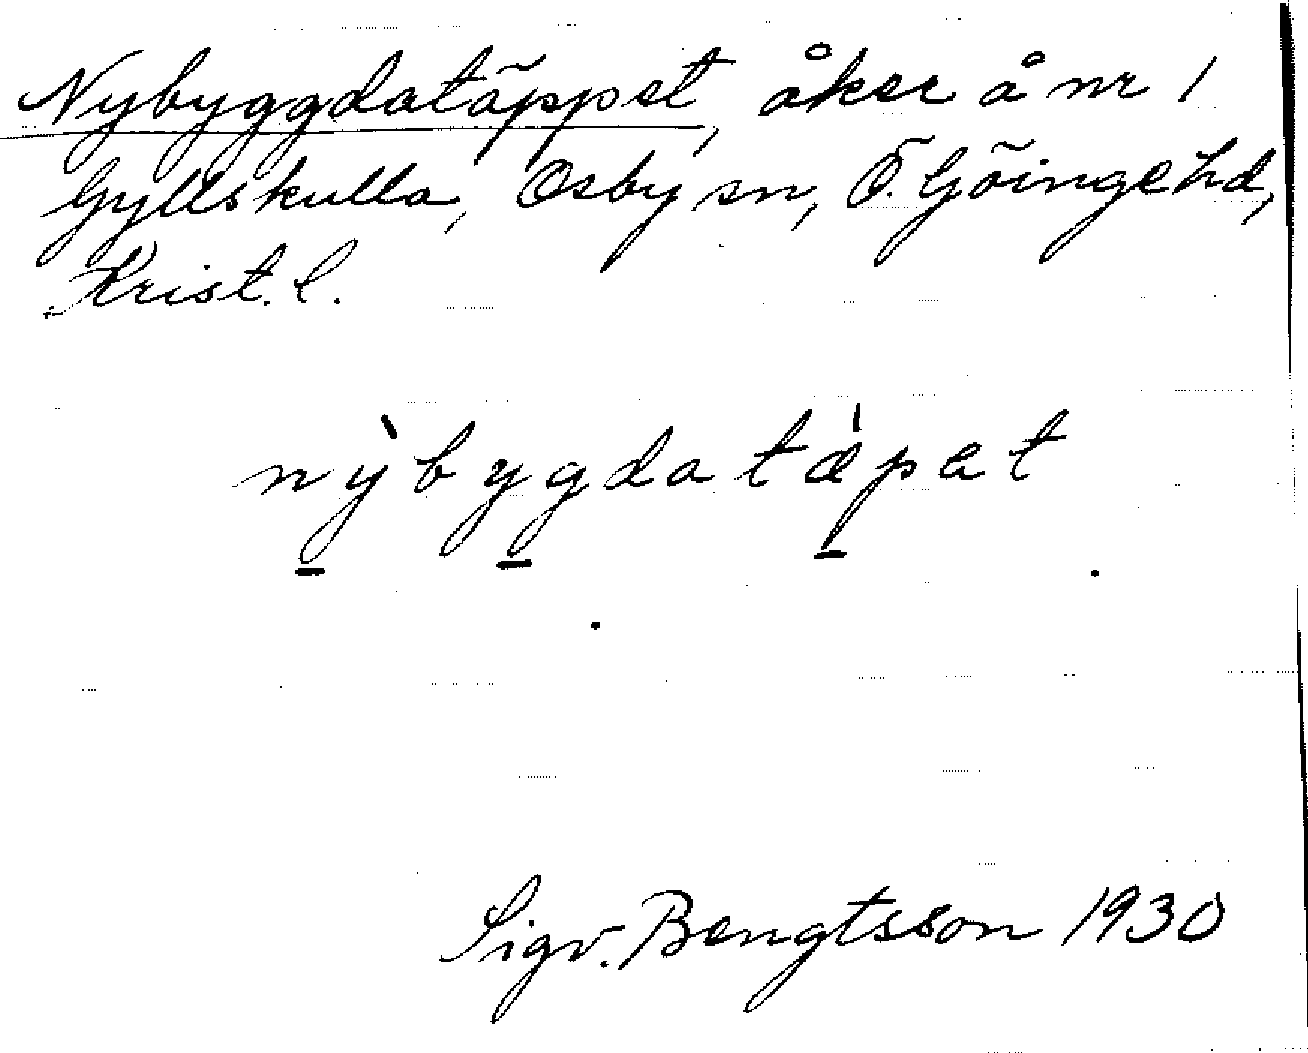 Nybyggdatäppet, åker å nr 1
Gyllskulla, Osby sn, Ö. Göinge hd,
Krist. l.
nỳbygdatæ̍pet
Sigv. Bengtsson 1930